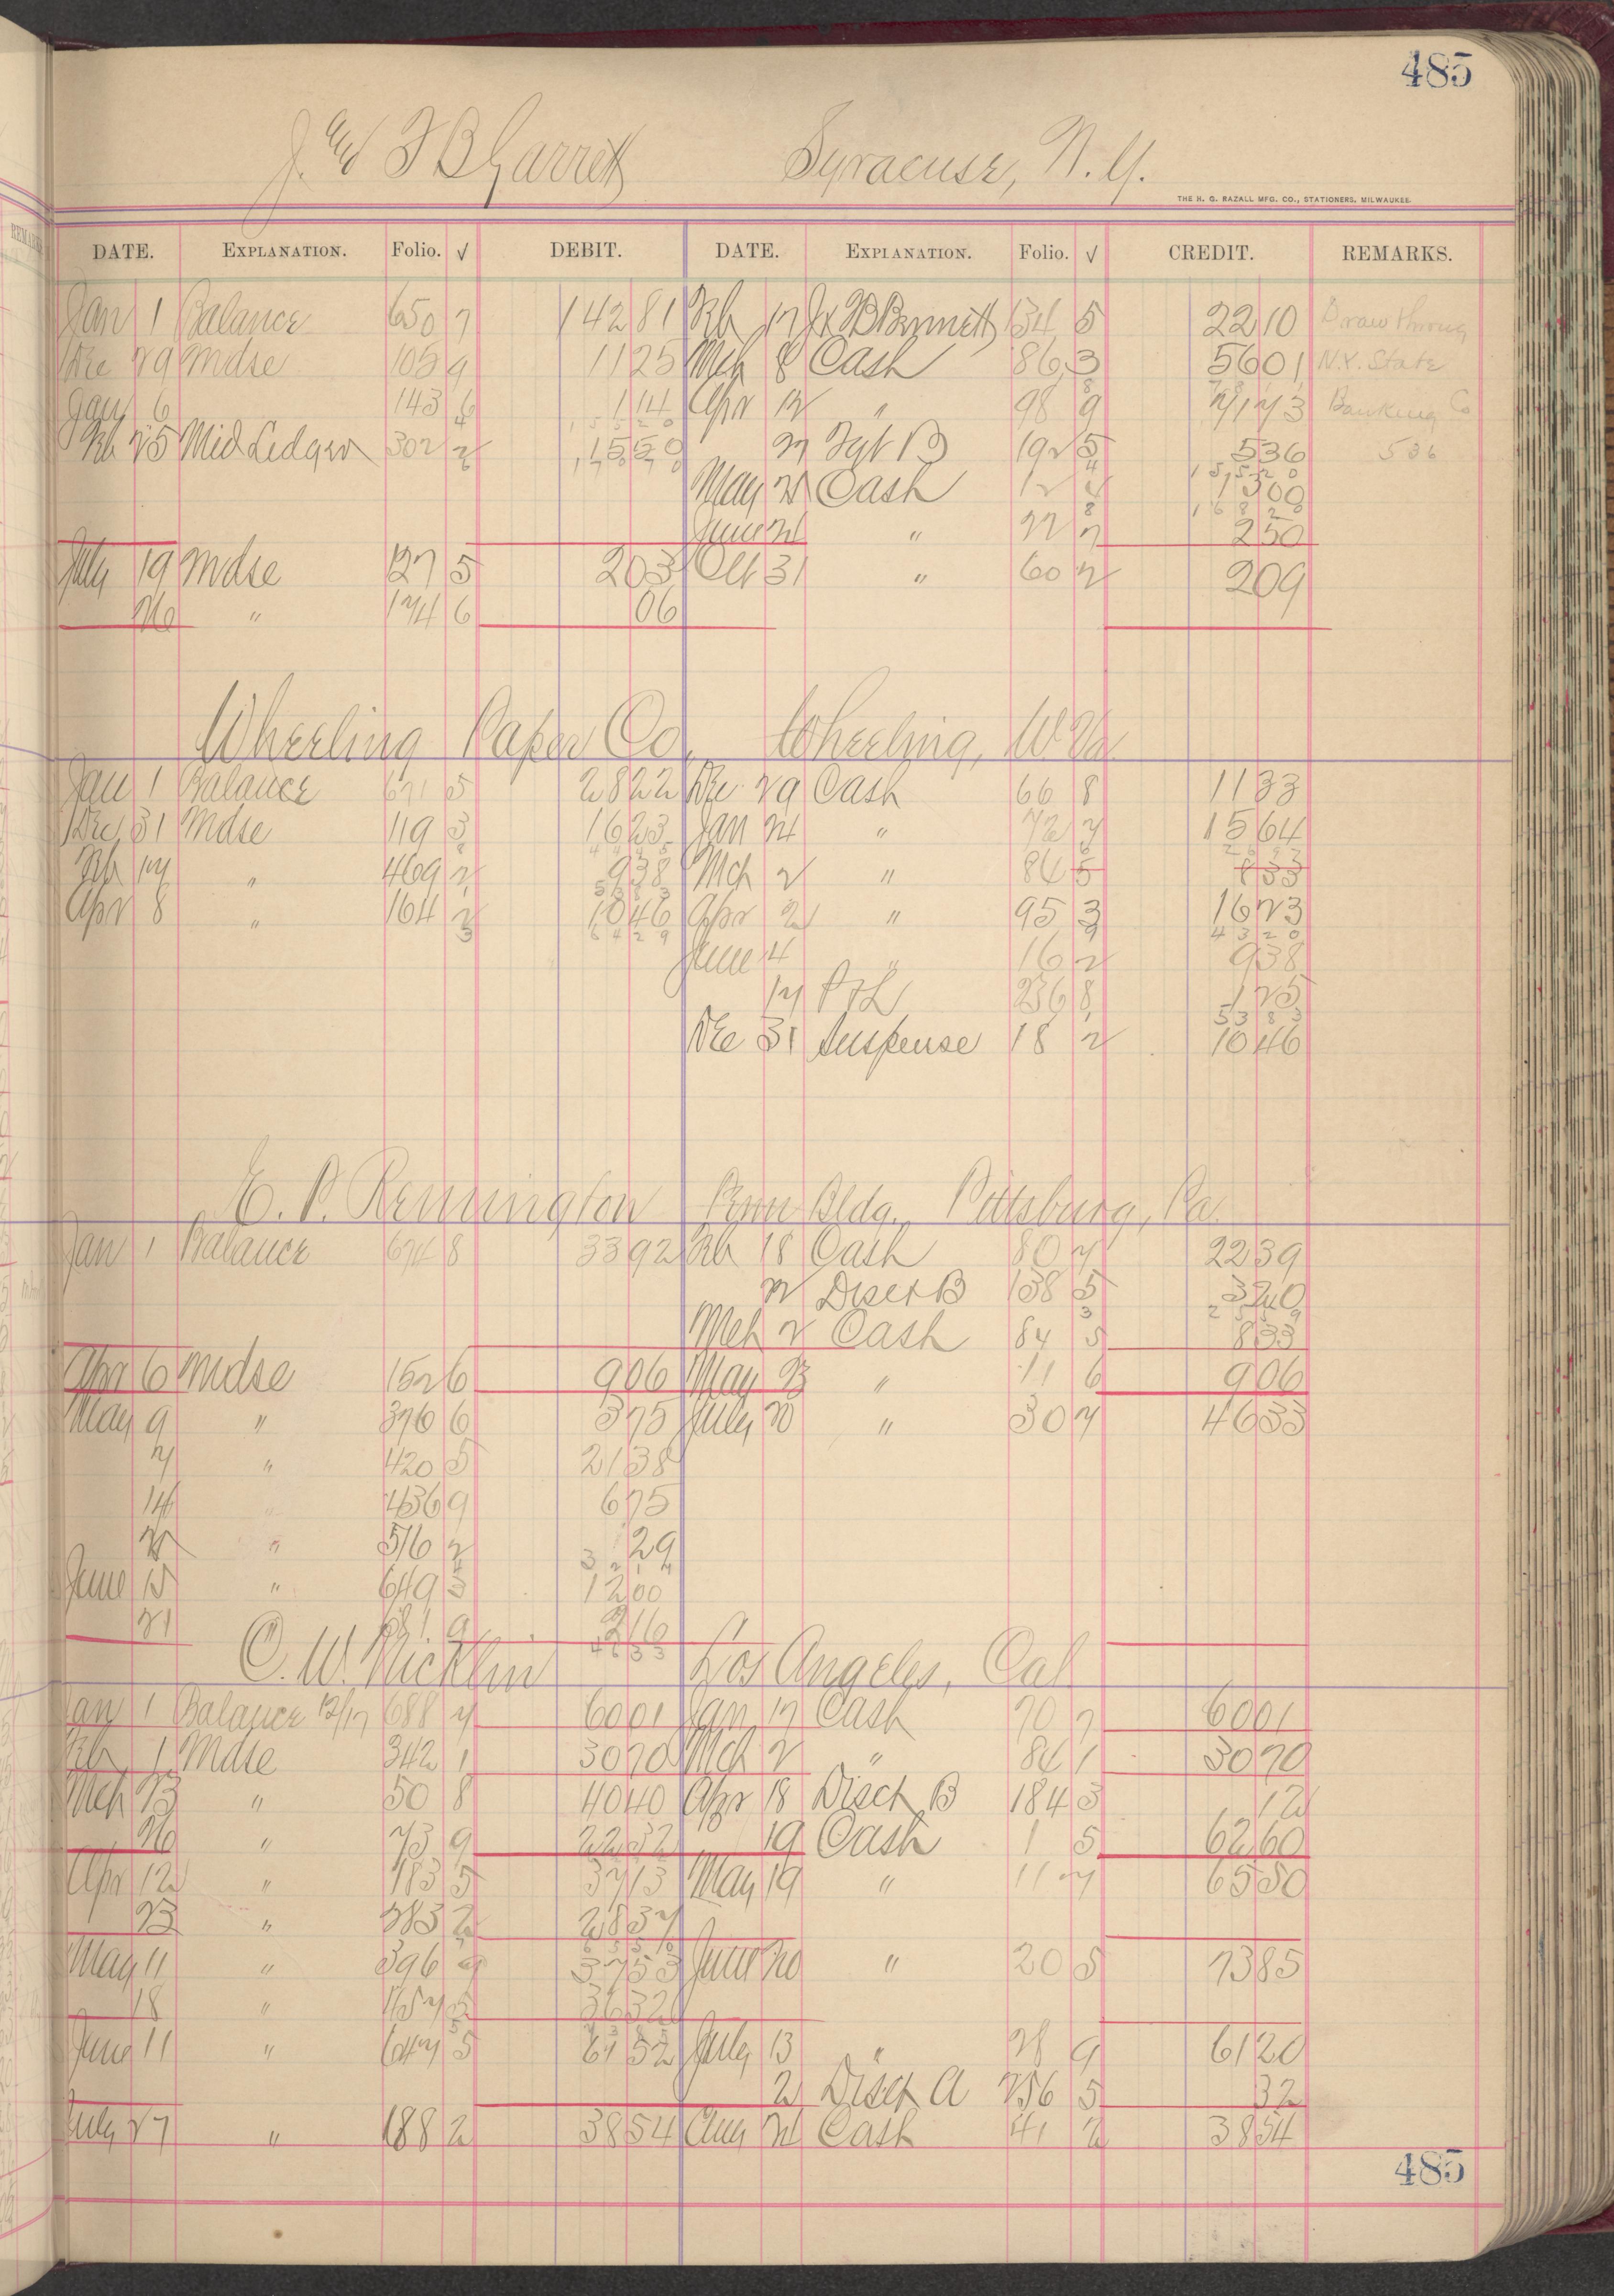 485
J. & F B Garrett Syracuse, N. Y.
THE H. G. RAZALL MFG. CO., STATIONERS, MILWAUKEE.
DATE. EXPLANATION. Folio. √ DEBIT. DATE. EXPLANATION. Folio. √ CREDIT. REMARKS.
Jan 1 Balance 650 7 142 81 Feb 17 134 5 22 10 Draw throug
Dec 29 Mdse 105 9 11 25 Mch 8 Cash 86 3 56 01 N.Y. State
Jan 6 143 6 1 14 Apr 12 " 98 9 71 73 Banking Co
Feb 25 Mid Ledger 302 2 15 50 27 Fgt B 192 5 5 36 5 36
May 21 Cash 12 4 13 00
June 21 " 22 7 2 50
July 19 Mdse 127 5 2 03 Oct 31 " 60 2 2 09
26 " 174 6 06
Wheeling Paper Co. Wheeling, W. Va
Jan 1 Balance 671 5 28 22 Dec 29 Cash 66 8 11 33
Dec 31 Mdse 119 3 16 23 Jan 24 " 72 7 15 64
Feb 17 " 469 2 9 38 Mch 2 " 84 5 8 33
Apr 8 " 164 2 10 46 Apr 2 " 95 3 16 23
June 4 " 16 2 9 38
17 P & L 236 8 1 25
53 83
Dec 31 Suspense 18 2 10 46
E. P. Remmington Penn Bldg., Pittsburg, Pa.
Jan 1 Balance 674 8 33 92 Feb 18 Cash 80 7 22 39
Disct B 138 5 3 20
Mch 2 Cash 84 5 8 33
Apr 6 Mdse 152 6 9 06 May 23 " 11 6 9 06
May 9 " 376 6 3 75 July 20 " 30 7 46 33
7 " 420 5 21 38
14 " 436 9 6 75
" 516 2 29
June 15 " 649 3 12 00
21 9 2 16
46 33
C. W. Nicklin Los Angeles, Cal
Jan 1 Balance 12/17 688 7 60 01 Jan 17 Cash 70 7 60 01
Feb 1 Mdse 342 1 30 70 Mch 2 " 84 1 30 70
Mch 23 " 50 8 40 40 Apr 18 Disct B 184 3 12
26 " 73 9 22 32 19 Cash 1 5 62 60
Apr 12 " 183 5 37 13 May 19 " 11 7 65 50
23 " 283 2 28 37
May 11 " 396 37 53 June 20 " 20 5 73 85
18 " 457 5 36 32
June 11 " 647 5 61 52 July 13 " 28 9 61 20
2 Disct A 256 5 32
July 27 " 188 2 38 54 Aug 21 Cash 41 2 38 54
485